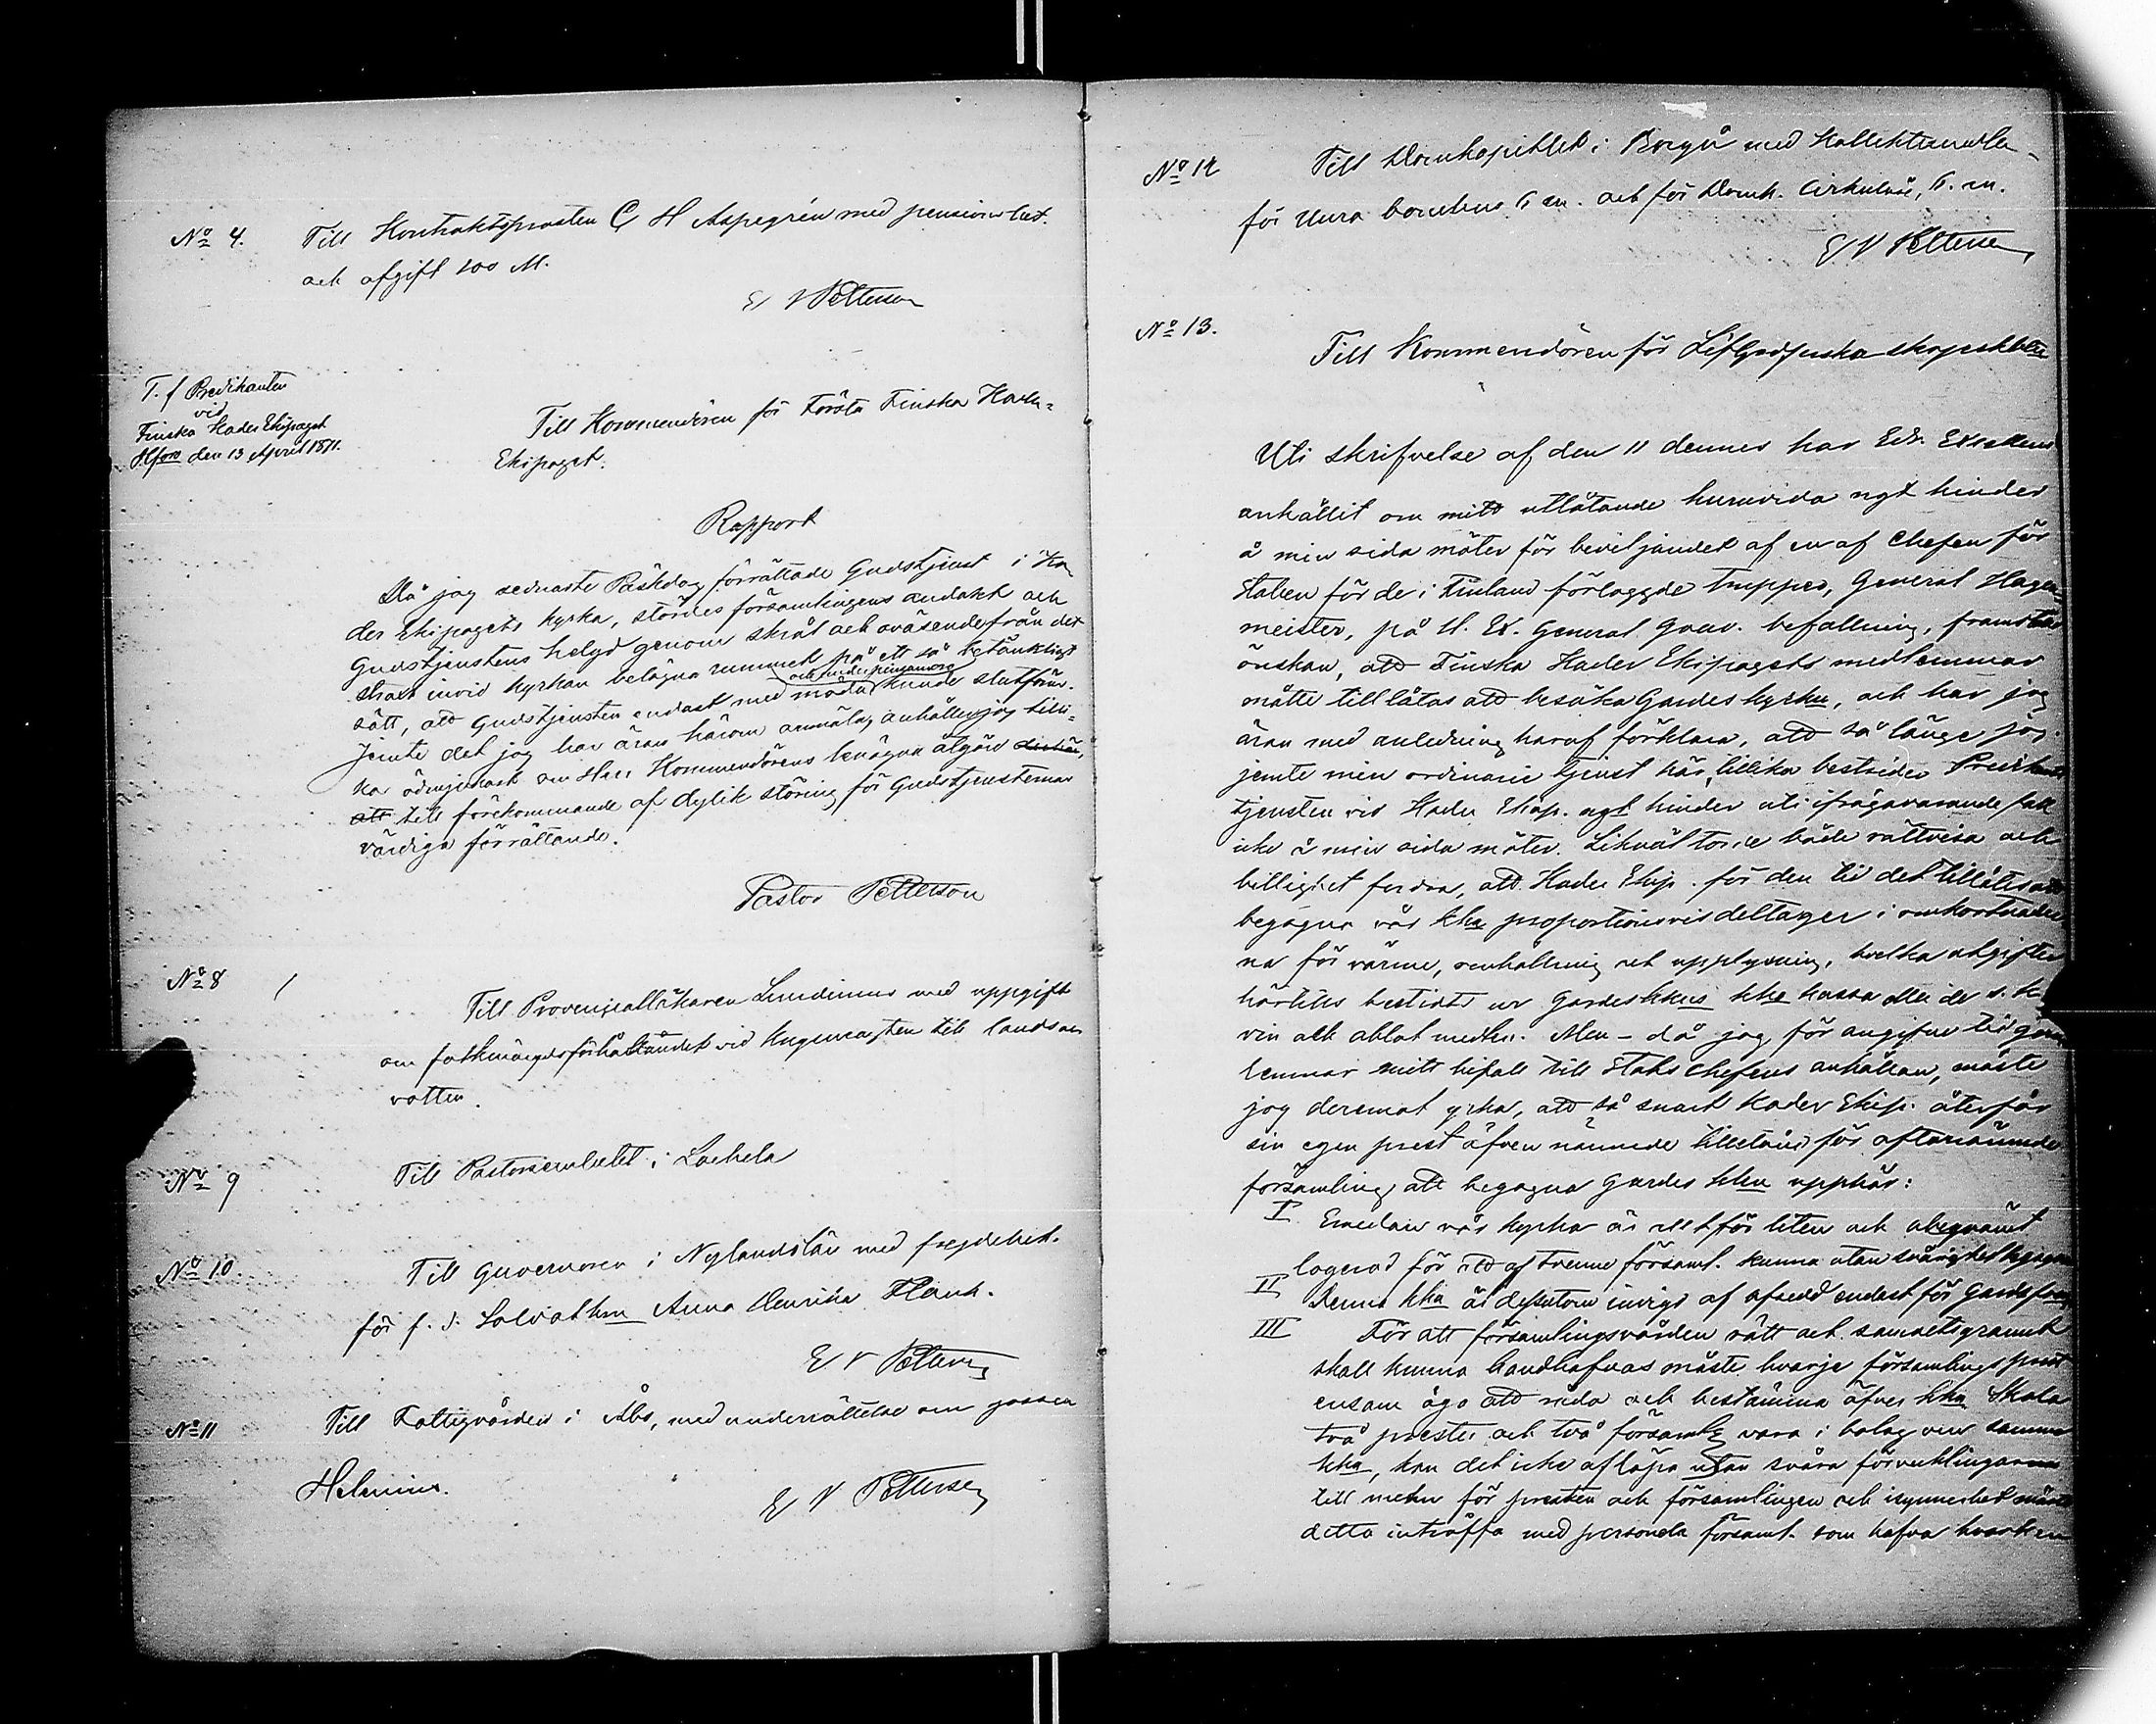 No 4. Till Kontraktsprosten C H Aspegrén med pensions bet.
och afgift 100 M.
E V Petterson
T. f Predikanten
vid
Finska Kader Ekipaget
H.fors den 13 April 1871.
Till Kommendören för Första Finska Kader
Ekipaget.
Rapport
Då jag sednaste Påskdag förrättade Gudstjenst i Ka
der Ekipagets kyrka, stördes församlingens andakt och
Gudstjenstens helgd genom skrål och oväsende från det
straxt invid kyrkan belägna rummet på ett så betänkligt
sätt, att Gudstjensten endast med möda kunde slutföras.
Jemte det jag har äran härom anmäla, anhåller jag tilli=
ka ödmjukast om Herr Kommendörens benägna åtgärd
att till förekommande af dylik störing för Gudstjensternas
värdiga förrättande.
Pastor Petterson
No 8
Till Provincialläkaren Lundinus med uppgift
om folkmängdsförhållandet vid
vatten.
No 9 Till Pastorsembetet i Lochela
No 10 Till Guvernören i Nylands län med frejdebet.
för f. d. Soldat Anna Henrika Plank.
E V Petterson
No 11 Till Fattigvården i Åbo, med underrättelse om gossen
Helenius.
E V Petterson
No 12 Till Domkapitlet i Borgå med Kollektmedlen
för Uura t. m. och för Domk. Cirkulär, t. m.
E V Petterson
No 13.
Till Kommendören för Lif Gardes Finska skarpskytte
Uti skrifvelse af den 11 dennes har Edr. Excellens
anhållit om mitt utlåtande huruvida ngt hinder
å min sida möter för beviljandet af en af Chefen för
Staben för de i Finland förlaggde trupper, General Hagen
meister, på H. Ex. General Guv. befallning, framstäld
önskan, att Finska Kader Ekipagets medlemmar
måtte tillåtas att besöka Gardes kyrkan, och har jag
äran med anledning haraf förklara, att så länge jag
jemte min ordinarie tjenst här tillika bestrider Predikants
tjensten vid Kader Ekip. ngt hinder uti ifrågavarande fall
icke å min sida möter. Likväl torde både rättvisa och
billighet fordra, att Kader Ekip. för den tid det tillåtes att
begagna vår kka proportionsvis deltager i omkostnader
na för värme, renhållning och upplysning, hvilka utgifter
härtills bestridts ur Gardes kkns kka kassa eller de s. k.
vin och ablat medlen. Men - då jag för angifne tid
lemnar mitt bifall till Stabs chefens anhållan, måste
jag deremot yrka, att så snart Kader Ekip. återfår
sin egen prest äfven nämnde tillstånd för oftanämnde
församling att begagna Gardes kkn upphör:
I Emedan vår kyrka är allt för liten och obeqvämt
lagerad för att af tvenne församl. kunna utan svårighet begagnas
II Denna kka är dessutom invigd af afsedd endast för Gardes
III För att församlingsvården rätt och samvetsgrannt
skall kunna handhafvas måste hvarje församlings prest
ensam ega att råda och bestämma öfver kka Skola
två prester och två församl. vara i bolag om samma
kka, kan det icke aflöpa utan svåra förvecklingar
till men för presten och församlingen och isynnerhet måste
detta inträffa med personela församl. som hafva hvarken